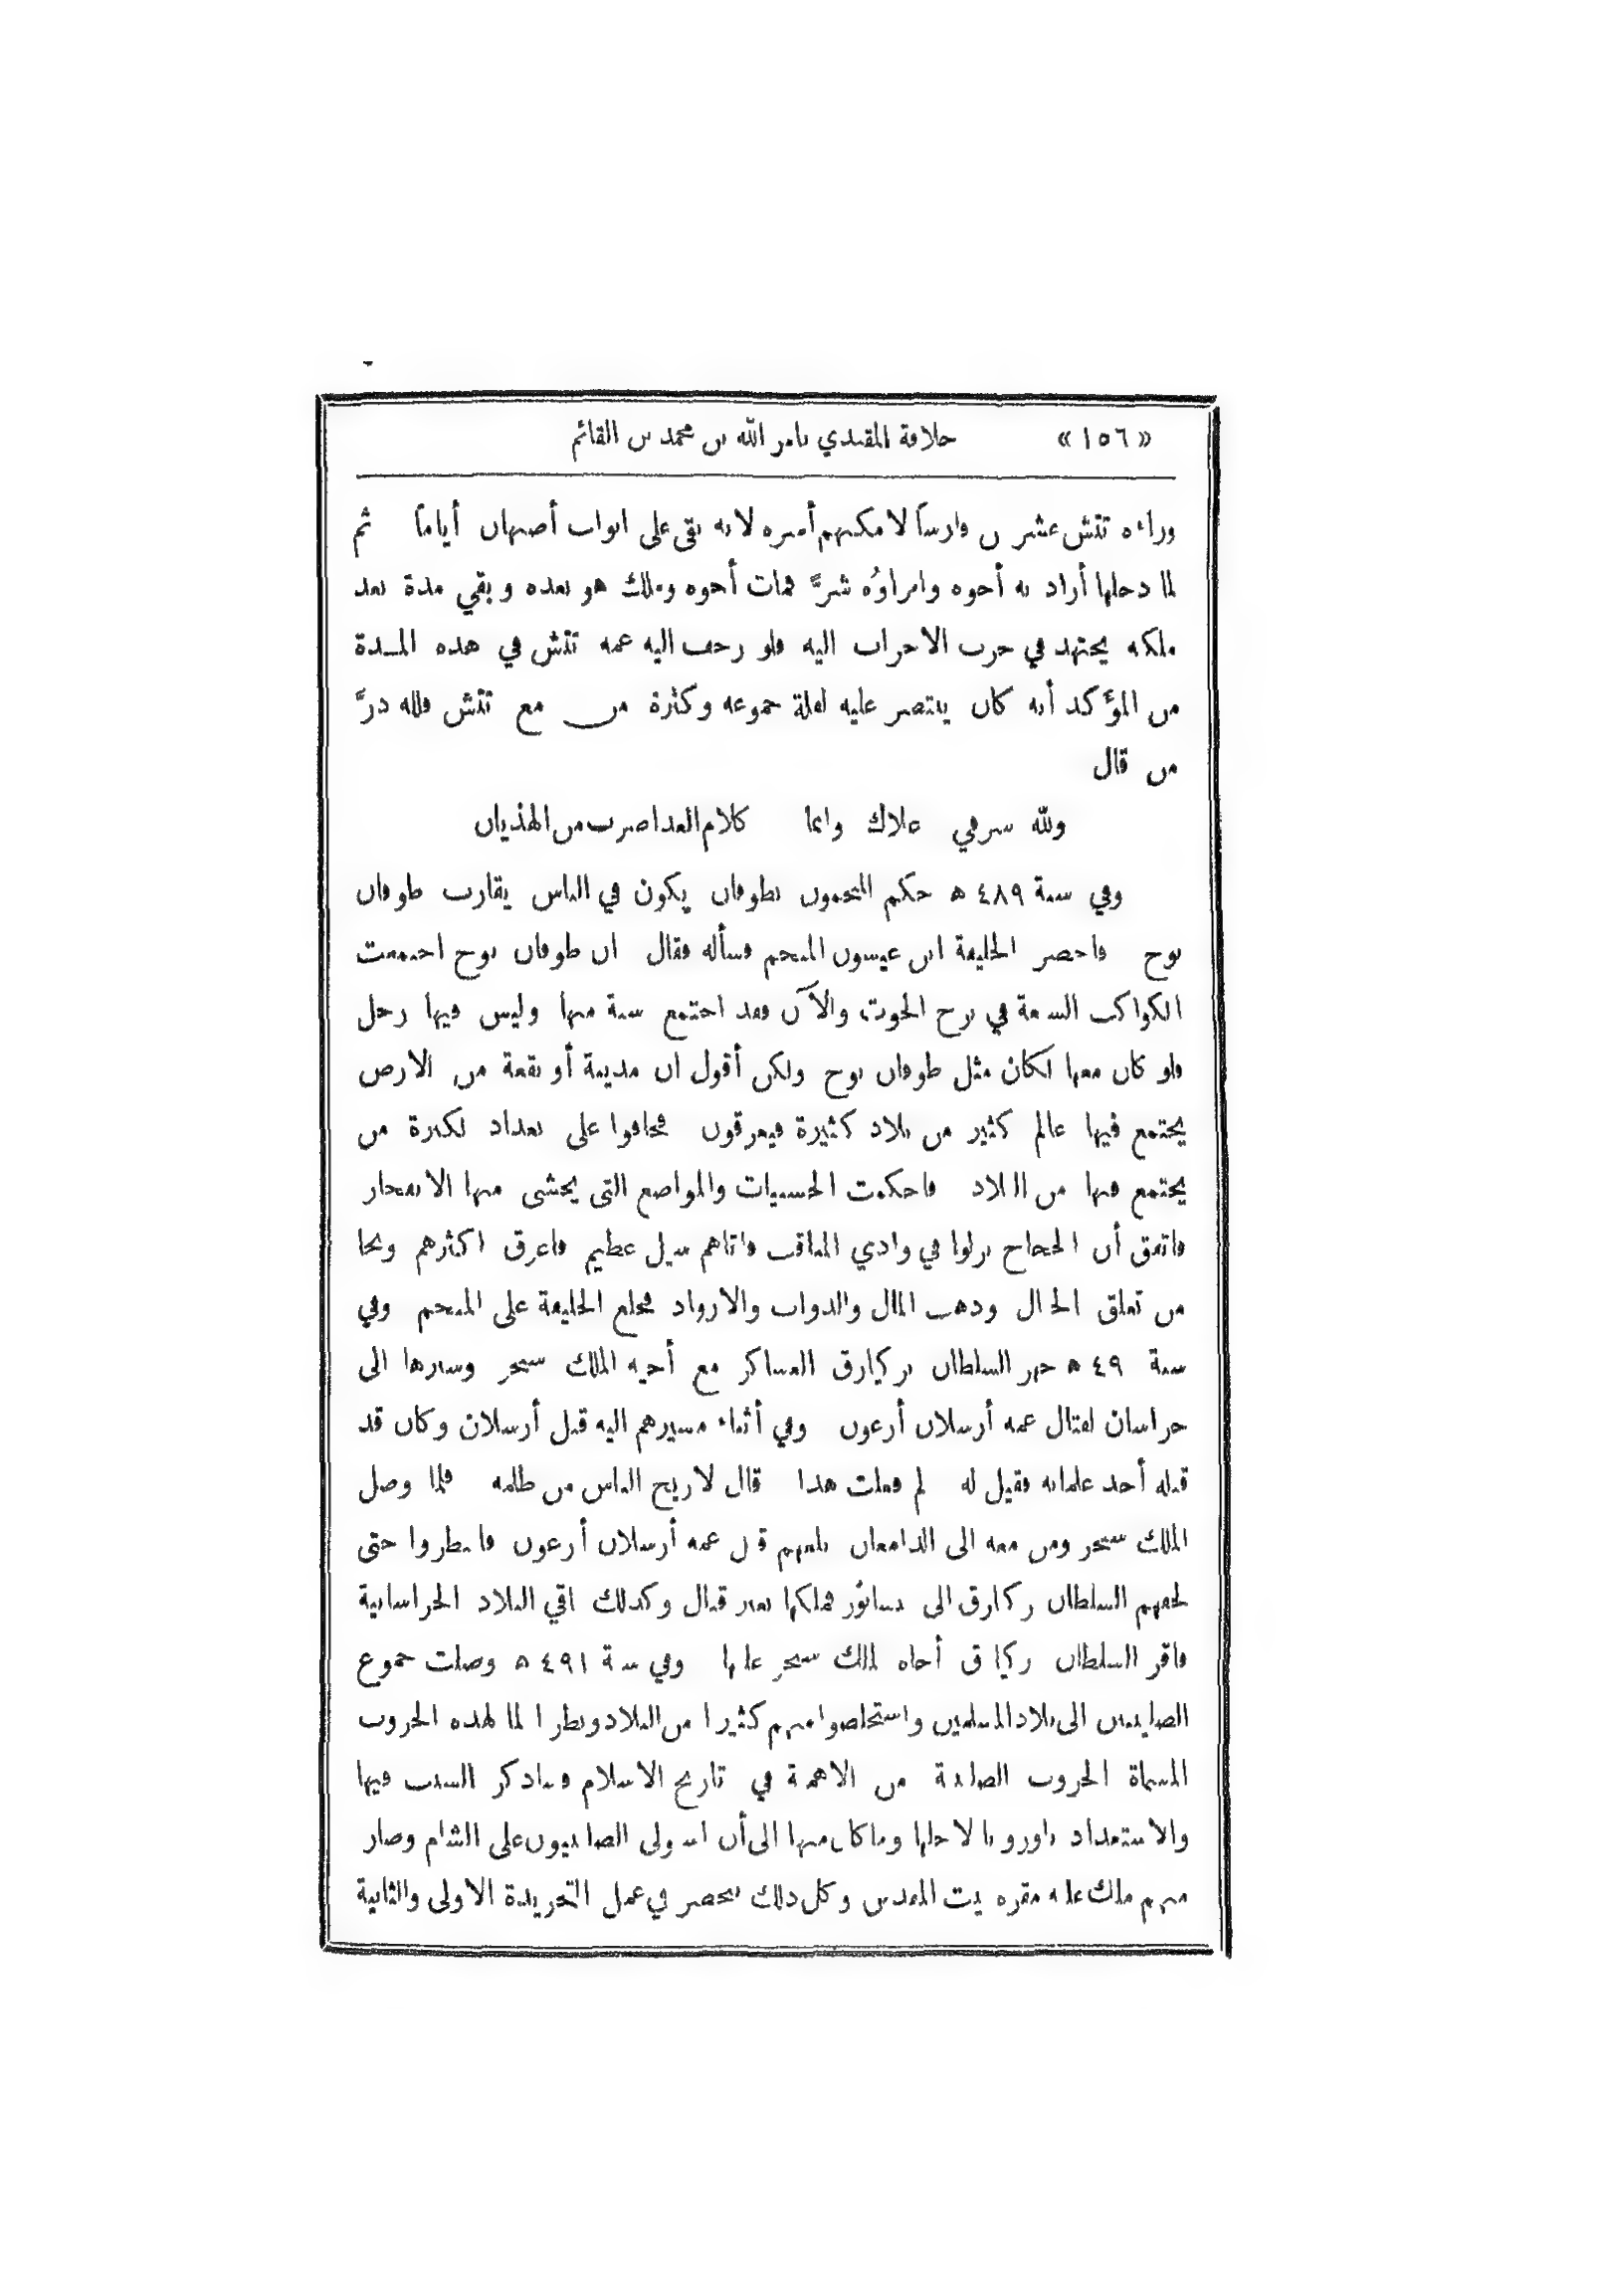 «١٥٦» خلافة المقتدي بامر الله بن محمد بن القائم
وراءه تتش عشرين فارساً لامكنهم أسره لانه بقى على ابواب أصبهان أياماً ثم
لما دخلها أراد به أخوه وامراؤه شرًّا فمات أخوه وملك هو بعده وبقي مدة بعد
ملكه يجتهد في حرب الاحزاب اليه فلو زحف اليه عمه تتش في هذه المدة
من المؤكد أنه كان ينتصر عليه لقلة جموعه وكثرة من مع تتش فلله درّ
من قال
ولله سر في علاك وانما كلام العدا ضرب من الهذيان
وفي سنة ٤٨٩ ه حكم المنجمون بطوفان يكون في الناس يقارب طوفان
نوح فاحضر الخليفة ابن عيسون المنجم فسأله فقال ان طوفان نوح اجتمعت
الكواكب السبعة في برج الحوت والآن فقد اجتمع ستة منها وليس فيها زحل
فلو كان معها لكان مثل طوفان نوح ولكن أقول ان مدينة أو بقعة من الارض
يجتمع فيها عالم كثير من بلاد كثيرة فيغرقون فخافوا على بغداد لكثرة من
يجتمع فيها من البلاد فاحكمت الجسيات والمواضع التى يخشى منها الانفجار
فاتفق أن الحجاج نزلوا في وادي المناقب فاتاهم سيل عظيم فاغرق اكثرهم ونجا
من تعلق الجبال وذهب المال والدواب والازواد فخلع الخليفة على المنجم وفي
سنة ٤٩ ه جهز السلطان بركيارق العساكر مع أخيه الملك سنجر وسيرها الى
خراسان لقتال عمه أرسلان أرغون وفي أثناء مسيرهم اليه قتل أرسلان وكان قد
قتله أحد غلمانه فقيل له لم فعلت هذا قال لاريح الناس من ظلمه فلما وصل
الملك سنجر ومن معه الى الدامغان بلغهم قتل عمه أرسلان أرغون فانتظروا حتى
لحقهم السلطان بركيارق الى نيسابور فملكها بغير قتال وكذلك باقي البلاد الخراسانية
فاقر السلطان بركيارق أخاه الملك سنجر عليها وفي سنة ٤٩١ ه وصلت جموع
الصليبيين الى بلاد المسلمين واستخلصوا منهم كثيرا من البلاد ونظرا لما لهذه الحروب
المسماة الحروب الصليبية من الاهمية في تاريخ الاسلام فسأذكر السبب فيها
والاستعداد باوروبا لاجلها وما كان منها الى أن استولى الصليبيون على الشام وصار
منهم ملك عليه مقره بيت المقدس وكل ذلك ينحصر في عمل التجريدة الاولى والثانية